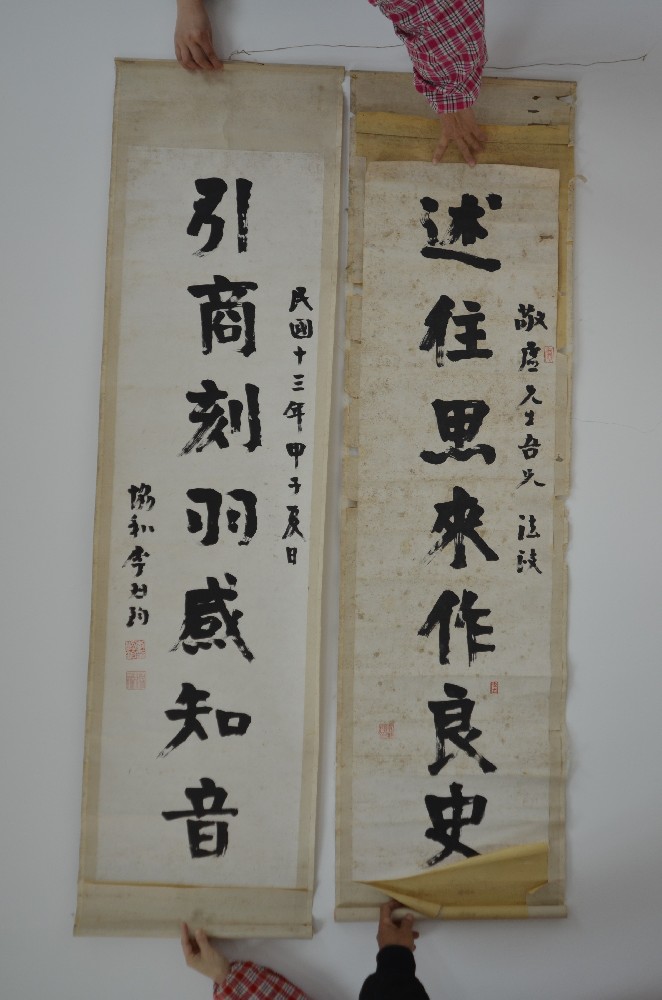 敬虛先生吾兄 法政
述往思來作良史
民國十三年甲子夏日
引商刻羽感知音
協和李烈鈞